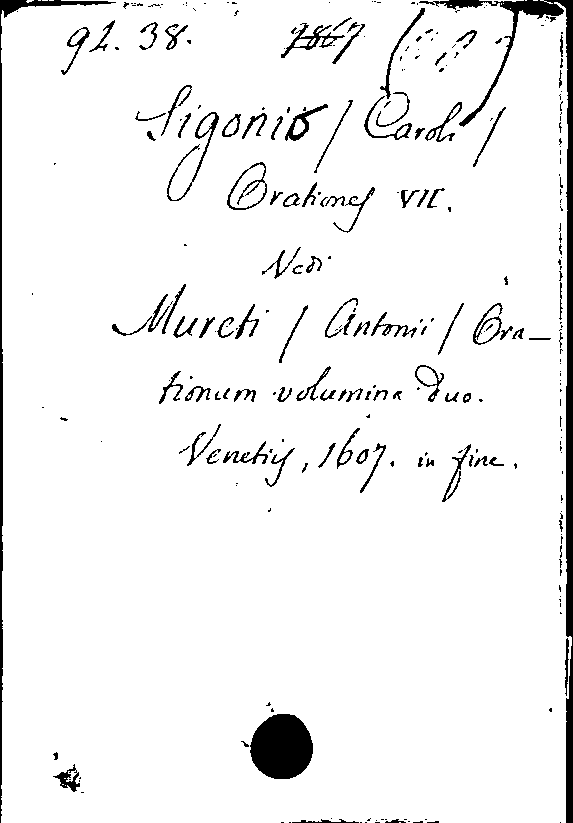 92. 38. 9867
Sigonio / Caroli /
Orationes VII.
Vedi
Mureti / Antonii / Ora-
tionum volumina duo.
Venetiis, 1607. in fine.